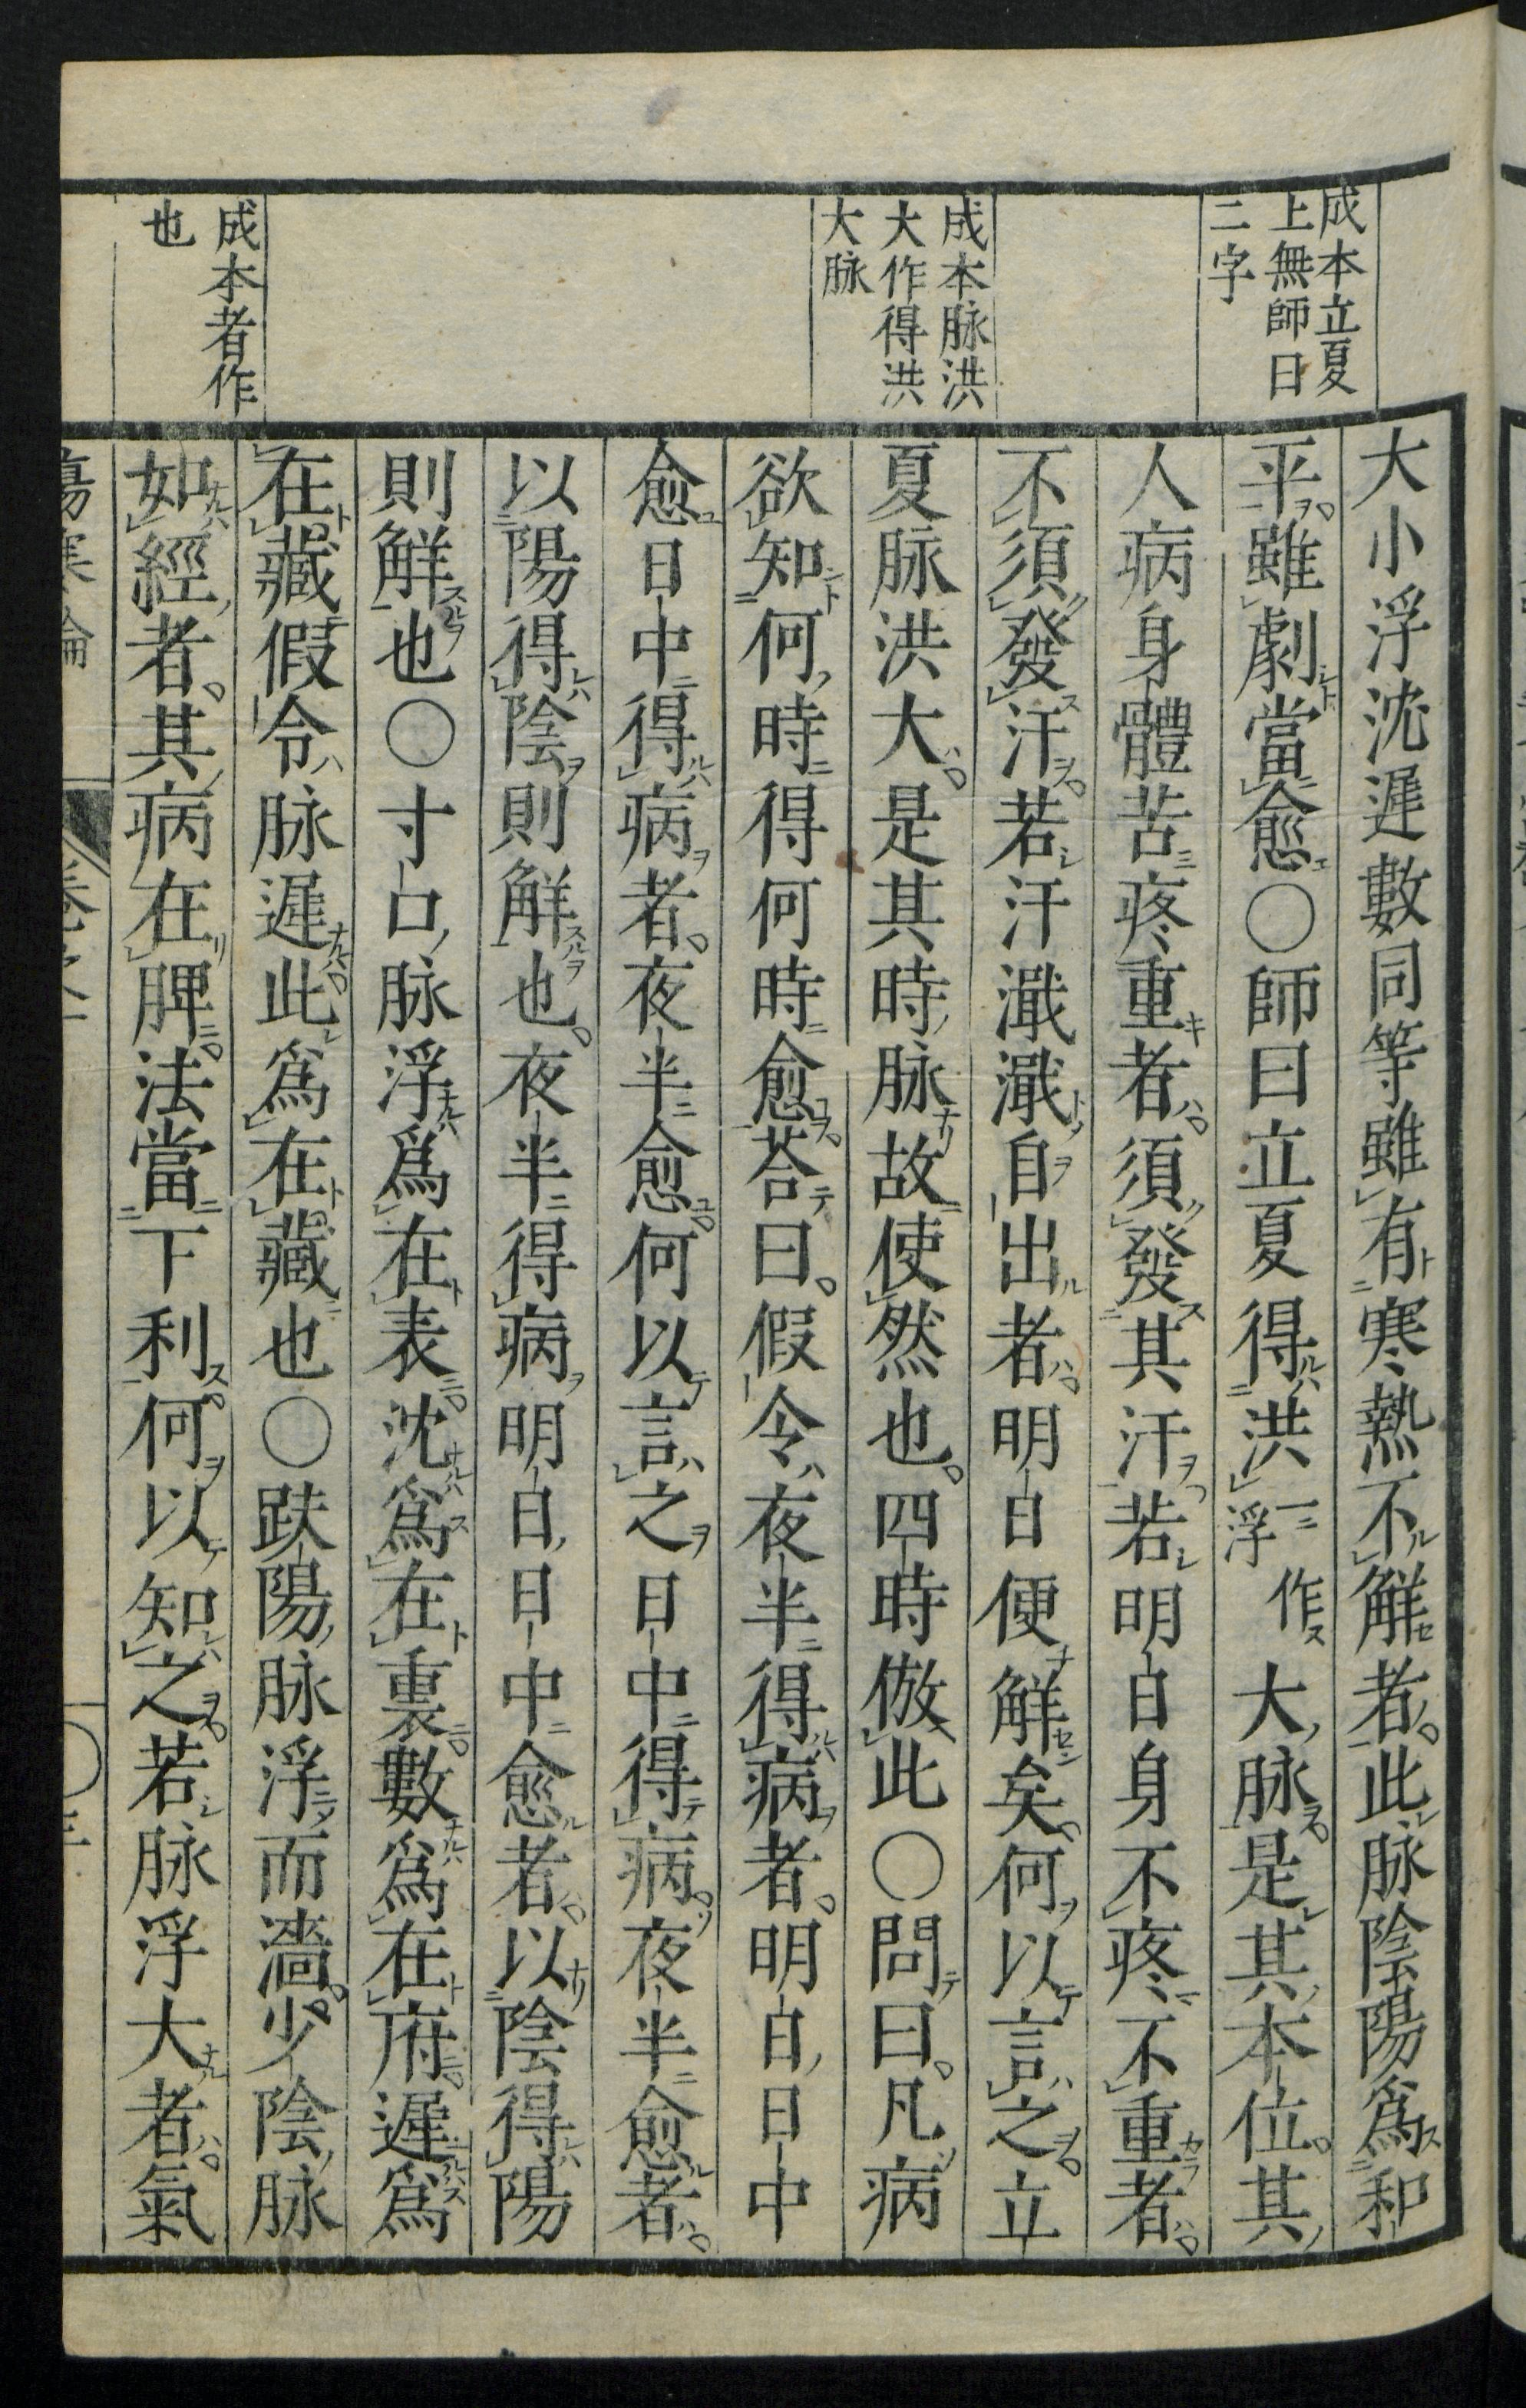 成本立夏
上無師曰
二字
成本脉洪
大作得洪
大脉
成本者作
也
大小浮沈遲數同等雖有寒熱不解者此脉陰陽爲和
平雖劇當愈〇師曰立夏得洪一作浮大脉是其本位其
人病身體苦疼重者須發其汗若明日身不疼不重者
不須發汗若汗濈濈自出者明日便解矣何以言之立
夏脉洪大是其時脉故使然也四時倣此〇問曰凡病
欲知何時得何時愈荅曰假令夜半得病者明日日中
愈日中得病者夜半愈何以言之日中得病夜半愈者
以陽得陰則解也夜半得病明日日中愈者以陰得陽
則解也〇寸口脉浮爲在表沈爲在裏數爲在府遲爲
在藏假令脉遲此爲在藏也〇趺陽脉浮而濇少陰脉
如經者其病在脾法當下利何以知之若脉浮大者氣